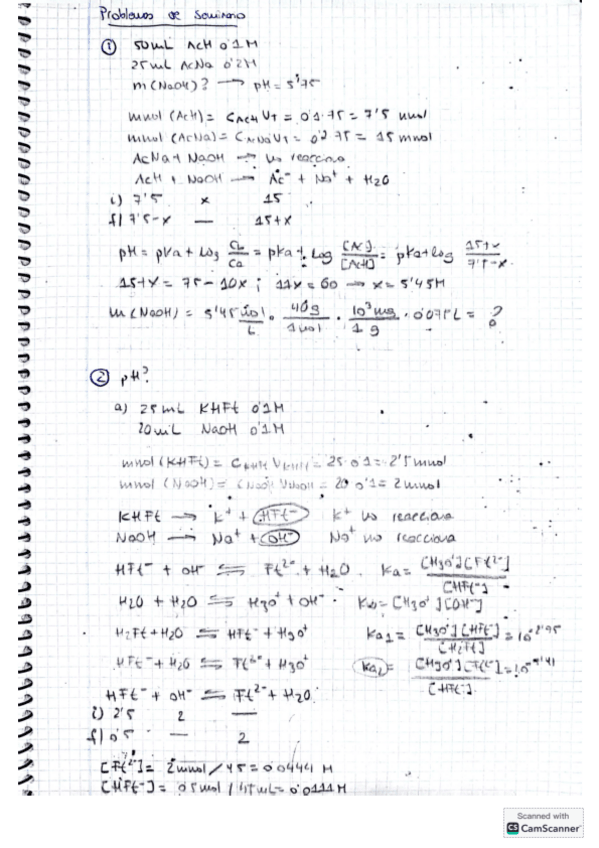 Problemas de Seminario
① 50mL AcH 0'1M
25mL AcNa 0'2M
m(NaOH)? → pH = 5'75
mmol (AcH) = CAcH VT = 0'1·75 = 7'5 mmol
mmol (AcNa) = CAcNa VT = 0'2 75 = 15 mmol
AcNa + NaOH → no reacciona
AcH + NaOH → Ac⁻ + Na⁺ + H2O
i) 7'5 x 15
f) 7'5-x — 15+x
pH = pKa + log Cb/Ca = pKa + log [Ac⁻]/[AcH] = pKa + log 15+x/7'5-x
15+x = 75 - 10x ; 11x = 60 → x = 5'45M
m(NaOH) = 5'45 mol/L · 40g/1mol · 10³mg/1g · 0'075L = ?
② pH?
a) 25mL KHFt 0'1M
20mL NaOH 0'1M
mmol (KHFt) = CKHFt VKHFt = 25·0'1 = 2'5 mmol
mmol (NaOH) = CNaOH VNaOH = 20 0'1 = 2 mmol
KHFt → K⁺ + HFt⁻ K⁺ no reacciona
NaOH → Na⁺ + OH⁻ Na⁺ no reacciona
HFt⁻ + OH⁻ ⇌ Ft²⁻ + H2O Ka = [H3O⁺][Ft²⁻]/[HFt⁻]
H2O + H2O ⇌ H3O⁺ + OH⁻ Kw = [H3O⁺][OH⁻]
H2Ft + H2O ⇌ HFt⁻ + H3O⁺ Ka1 = [H3O⁺][HFt⁻]/[H2Ft] = 10⁻²'⁹⁵
HFt⁻ + H2O ⇌ Ft²⁻ + H3O⁺ Ka2 = [H3O⁺][Ft²⁻]/[HFt⁻] = 10⁻⁵'⁴¹
HFt⁻ + OH⁻ ⇌ Ft²⁻ + H2O
i) 2'5 2 —
f) 0'5 — 2
[Ft²⁻] = 2mmol/45 = 0'0444 M
[HFt⁻] = 0'5mol/45mL = 0'0111M
Scanned with
CS CamScanner